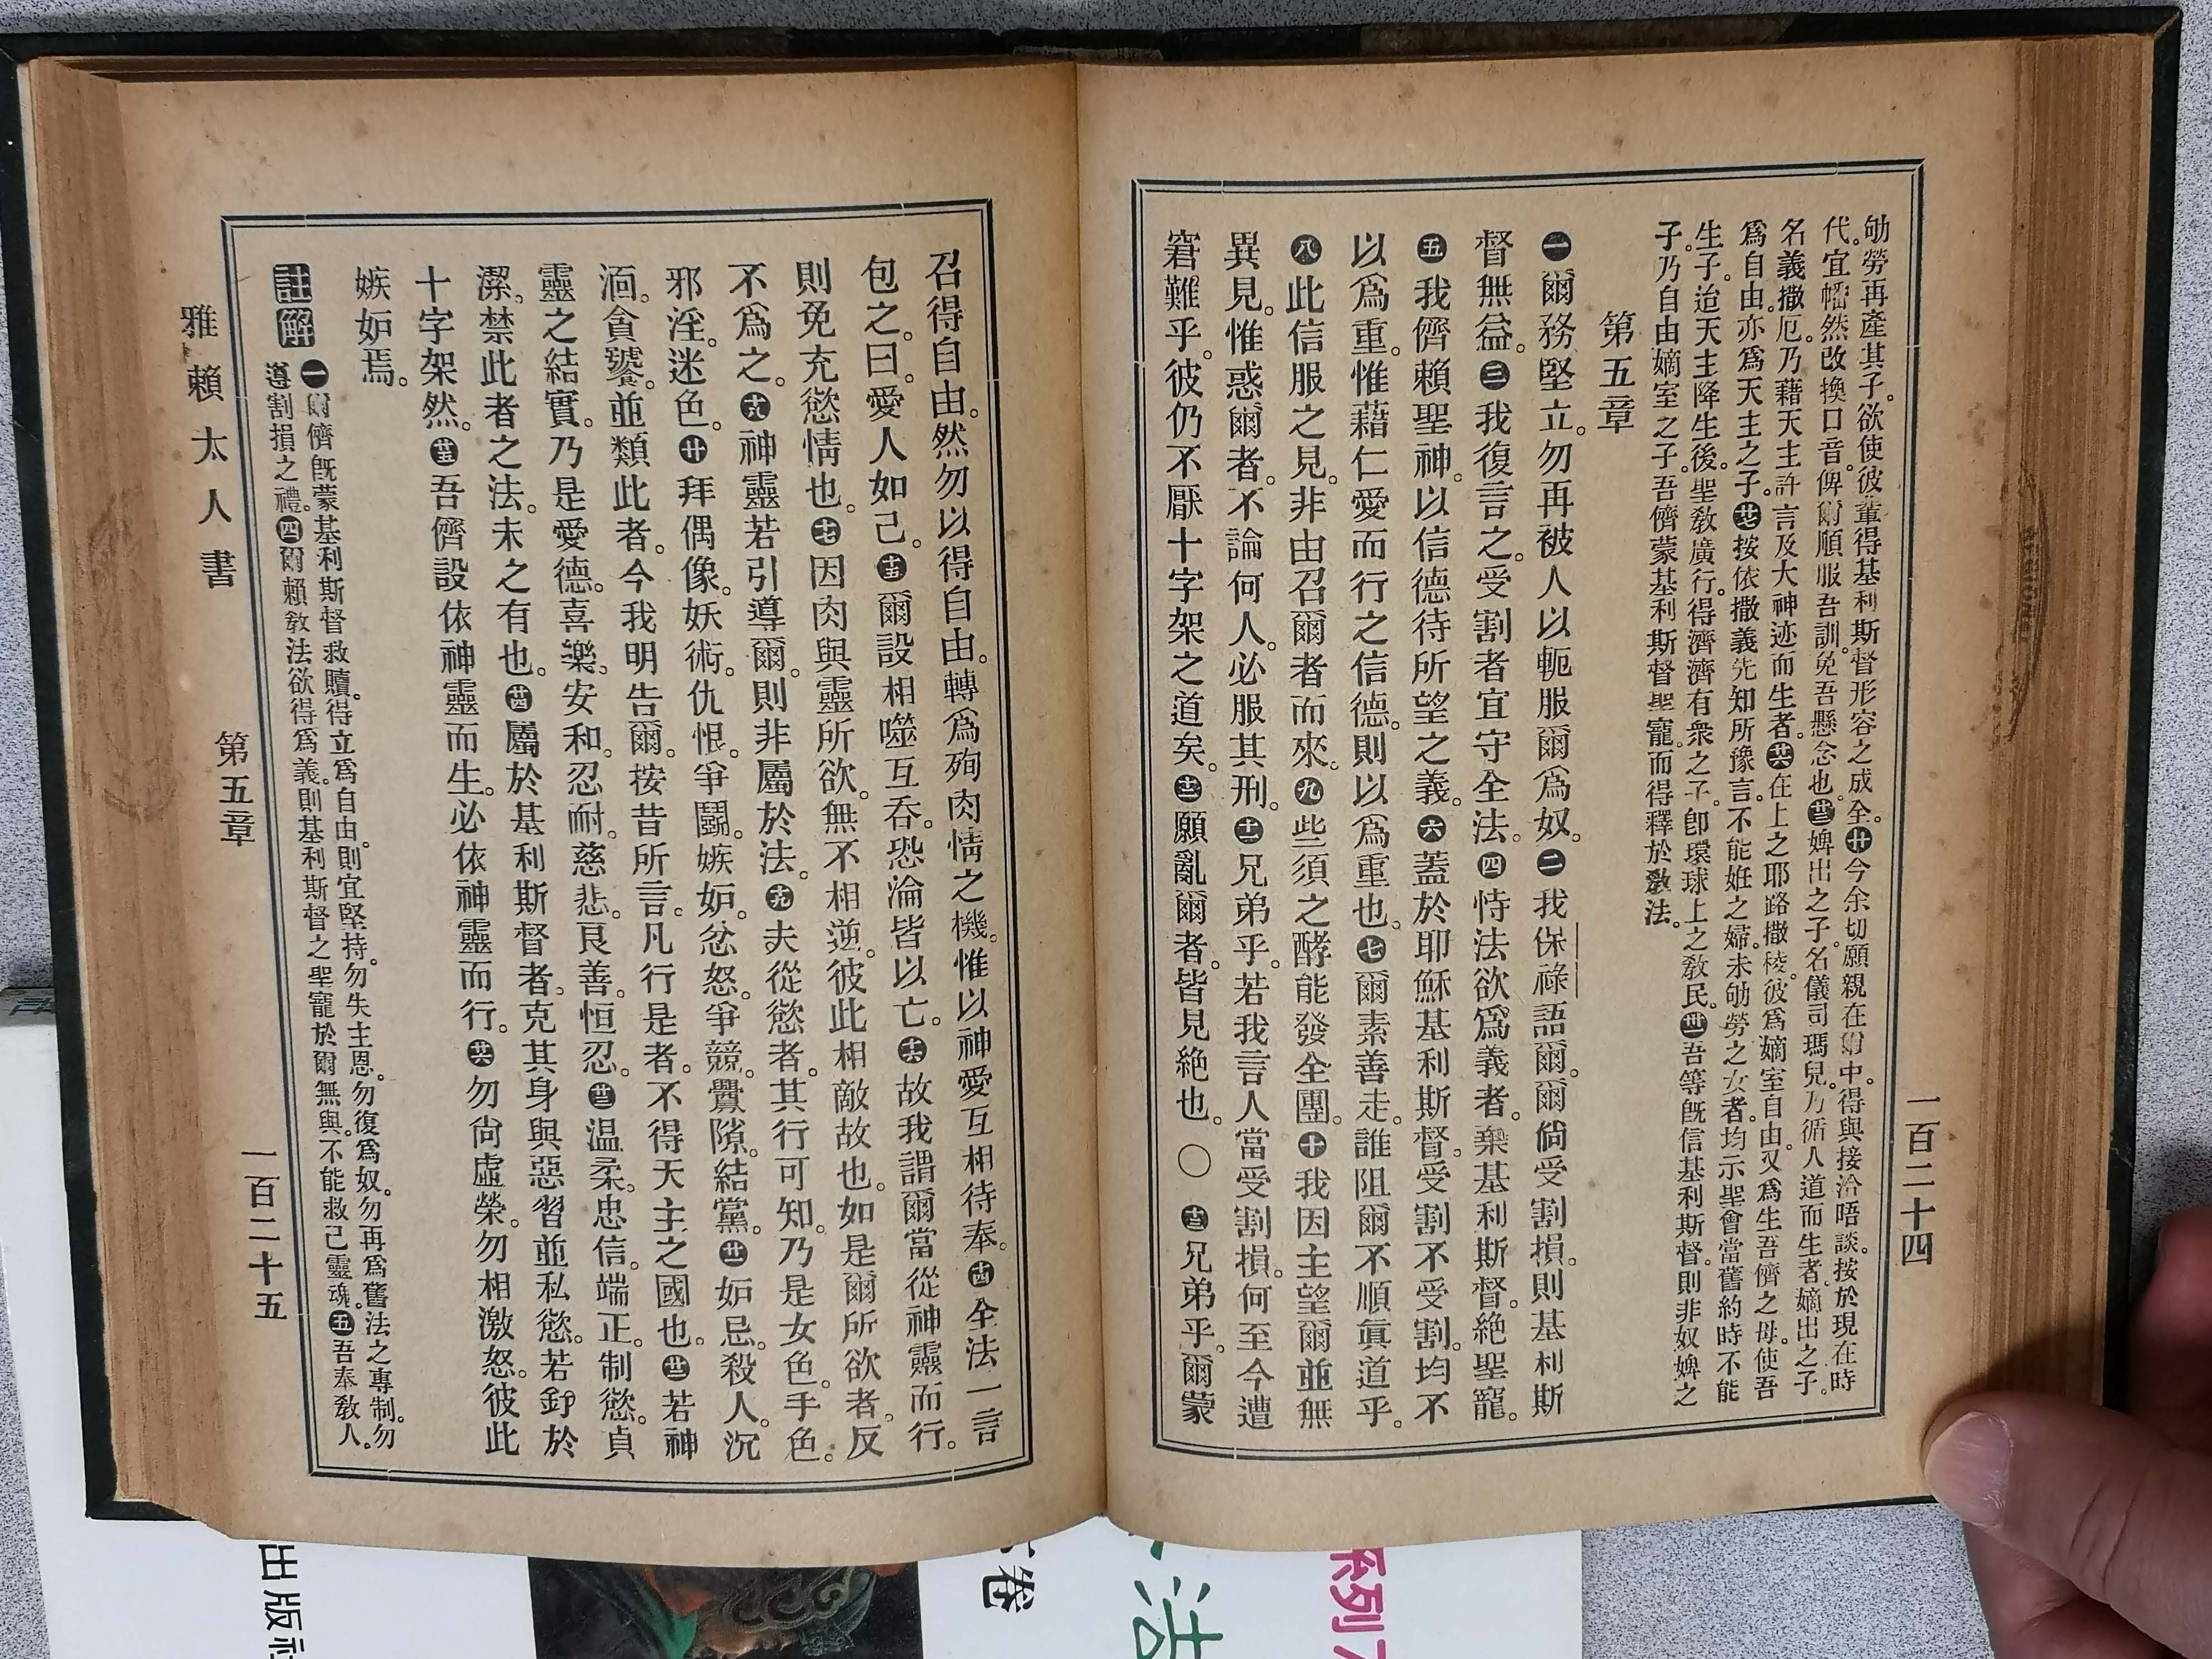 一百二十四
劬勞再產其子。欲使彼輩得基利斯督形容之成全。廿今余切願親在爾中。得與接洽晤談。按於現在時
代。宜幡然改換口音。俾爾順服吾訓。免吾懸念也。廿三婢出之子。名儀司瑪兒。乃循人道而生者。嫡出之子。
名義撒厄。乃藉天主許言及大神迹而生者。廿六在上之耶路撒稜。彼爲嫡室自由。又爲生吾儕之母。使吾
爲自由。亦爲天主之子。廿七按依撒義先知所豫言。不能姙之婦。未劬勞之女者。均示聖會當舊約時不能
生子。迨天主降生後。聖敎廣行。得濟濟有衆之子。卽環球上之敎民。卅一吾等旣信基利斯督。則非奴婢之
子。乃自由嫡室之子。吾儕蒙基利斯督聖寵。而得釋於敎法。
第五章
一爾務堅立。勿再被人以軛服爾爲奴。二我保祿語爾。爾倘受割損。則基利斯
督無益。三我復言之。受割者宜守全法。四恃法欲爲義者。棄基利斯督。絶聖寵。
五我儕賴聖神。以信德待所望之義。六蓋於耶穌基利斯督。受割不受割。均不
以爲重。惟藉仁愛而行之信德。則以爲重也。七爾素善走。誰阻爾不順眞道乎。
八此信服之見。非由召爾者而來。九些須之酵能發全團。十我因主望爾並無
異見。惟惑爾者。不論何人。必服其刑。十一兄弟乎。若我言人當受割損。何至今遭
窘難乎。彼仍不厭十字架之道矣。十二願亂爾者。皆見絶也。〇十三兄弟乎。爾蒙
召得自由。然勿以得自由。轉爲殉肉情之機。惟以神愛互相待奉。十四全法一言
包之。曰。愛人如己。十五爾設相噬互吞。恐淪皆以亡。十六故我謂爾當從神靈而行。
則免充慾情也。十七因肉與靈所欲。無不相逆。彼此相敵故也。如是爾所欲者。反
不爲之。十八神靈若引導爾。則非屬於法。十九夫從慾者。其行可知。乃是女色。手色。
邪淫。迷色。廿拜偶像。妖術。仇恨。爭鬭。嫉妒。忿怒。爭競。釁隙。結黨。廿一妒忌。殺人。沉
湎。貪饕。並類此者。今我明告爾。按昔所言。凡行是者。不得天主之國也。廿二若神
靈之結實。乃是愛德。喜樂。安和。忍耐。慈悲。良善。恒忍。廿三温柔。忠信。端正。制慾。貞
潔。禁此者之法。未之有也。廿四屬於基利斯督者。克其身與惡習並私慾。若釘於
十字架然。廿五吾儕設依神靈而生。必依神靈而行。廿六勿尙虛榮。勿相激怒。彼此
嫉妒焉。
註解 一爾儕旣蒙基利斯督救贖。得立爲自由。則宜堅持。勿失主恩。勿復爲奴。勿再爲舊法之專制。勿
遵割損之禮。四爾賴敎法欲得爲義。則基利斯督之聖寵於爾無與。不能救己靈魂。五吾奉敎人。
雅賴太人書 第五章 一百二十五
出版社
卷
法
系列